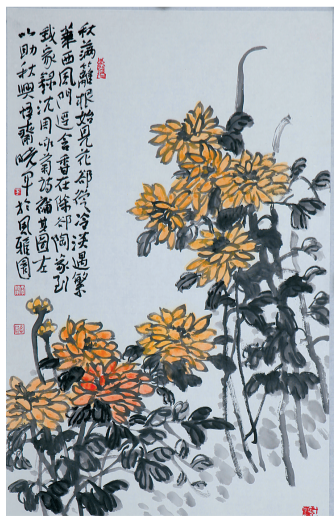 秋滿籬根始見花却從冷淡遇繁
華西風門逕含香在除却陶家到
我家録沈周咏菊詩補其圖左
以助秋興齋曉軍於風雅園